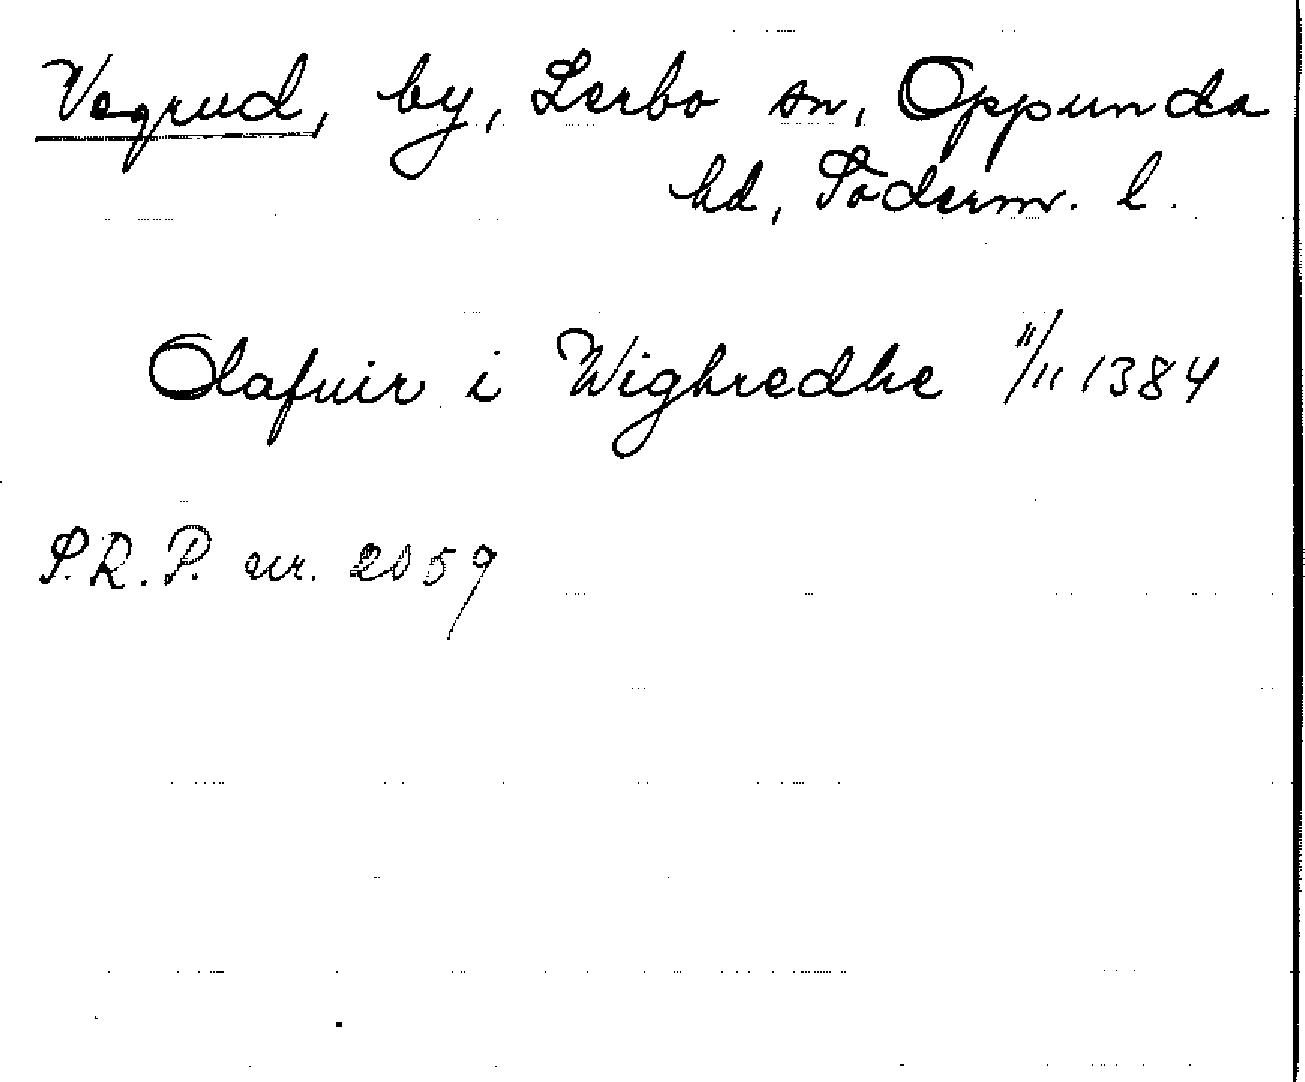 Vegrud, by, Lerbo sn, Oppunda
hd, Söderm. l.
Olafuir i Wighredhe 11/11 1384
S.R.P. nr. 2059